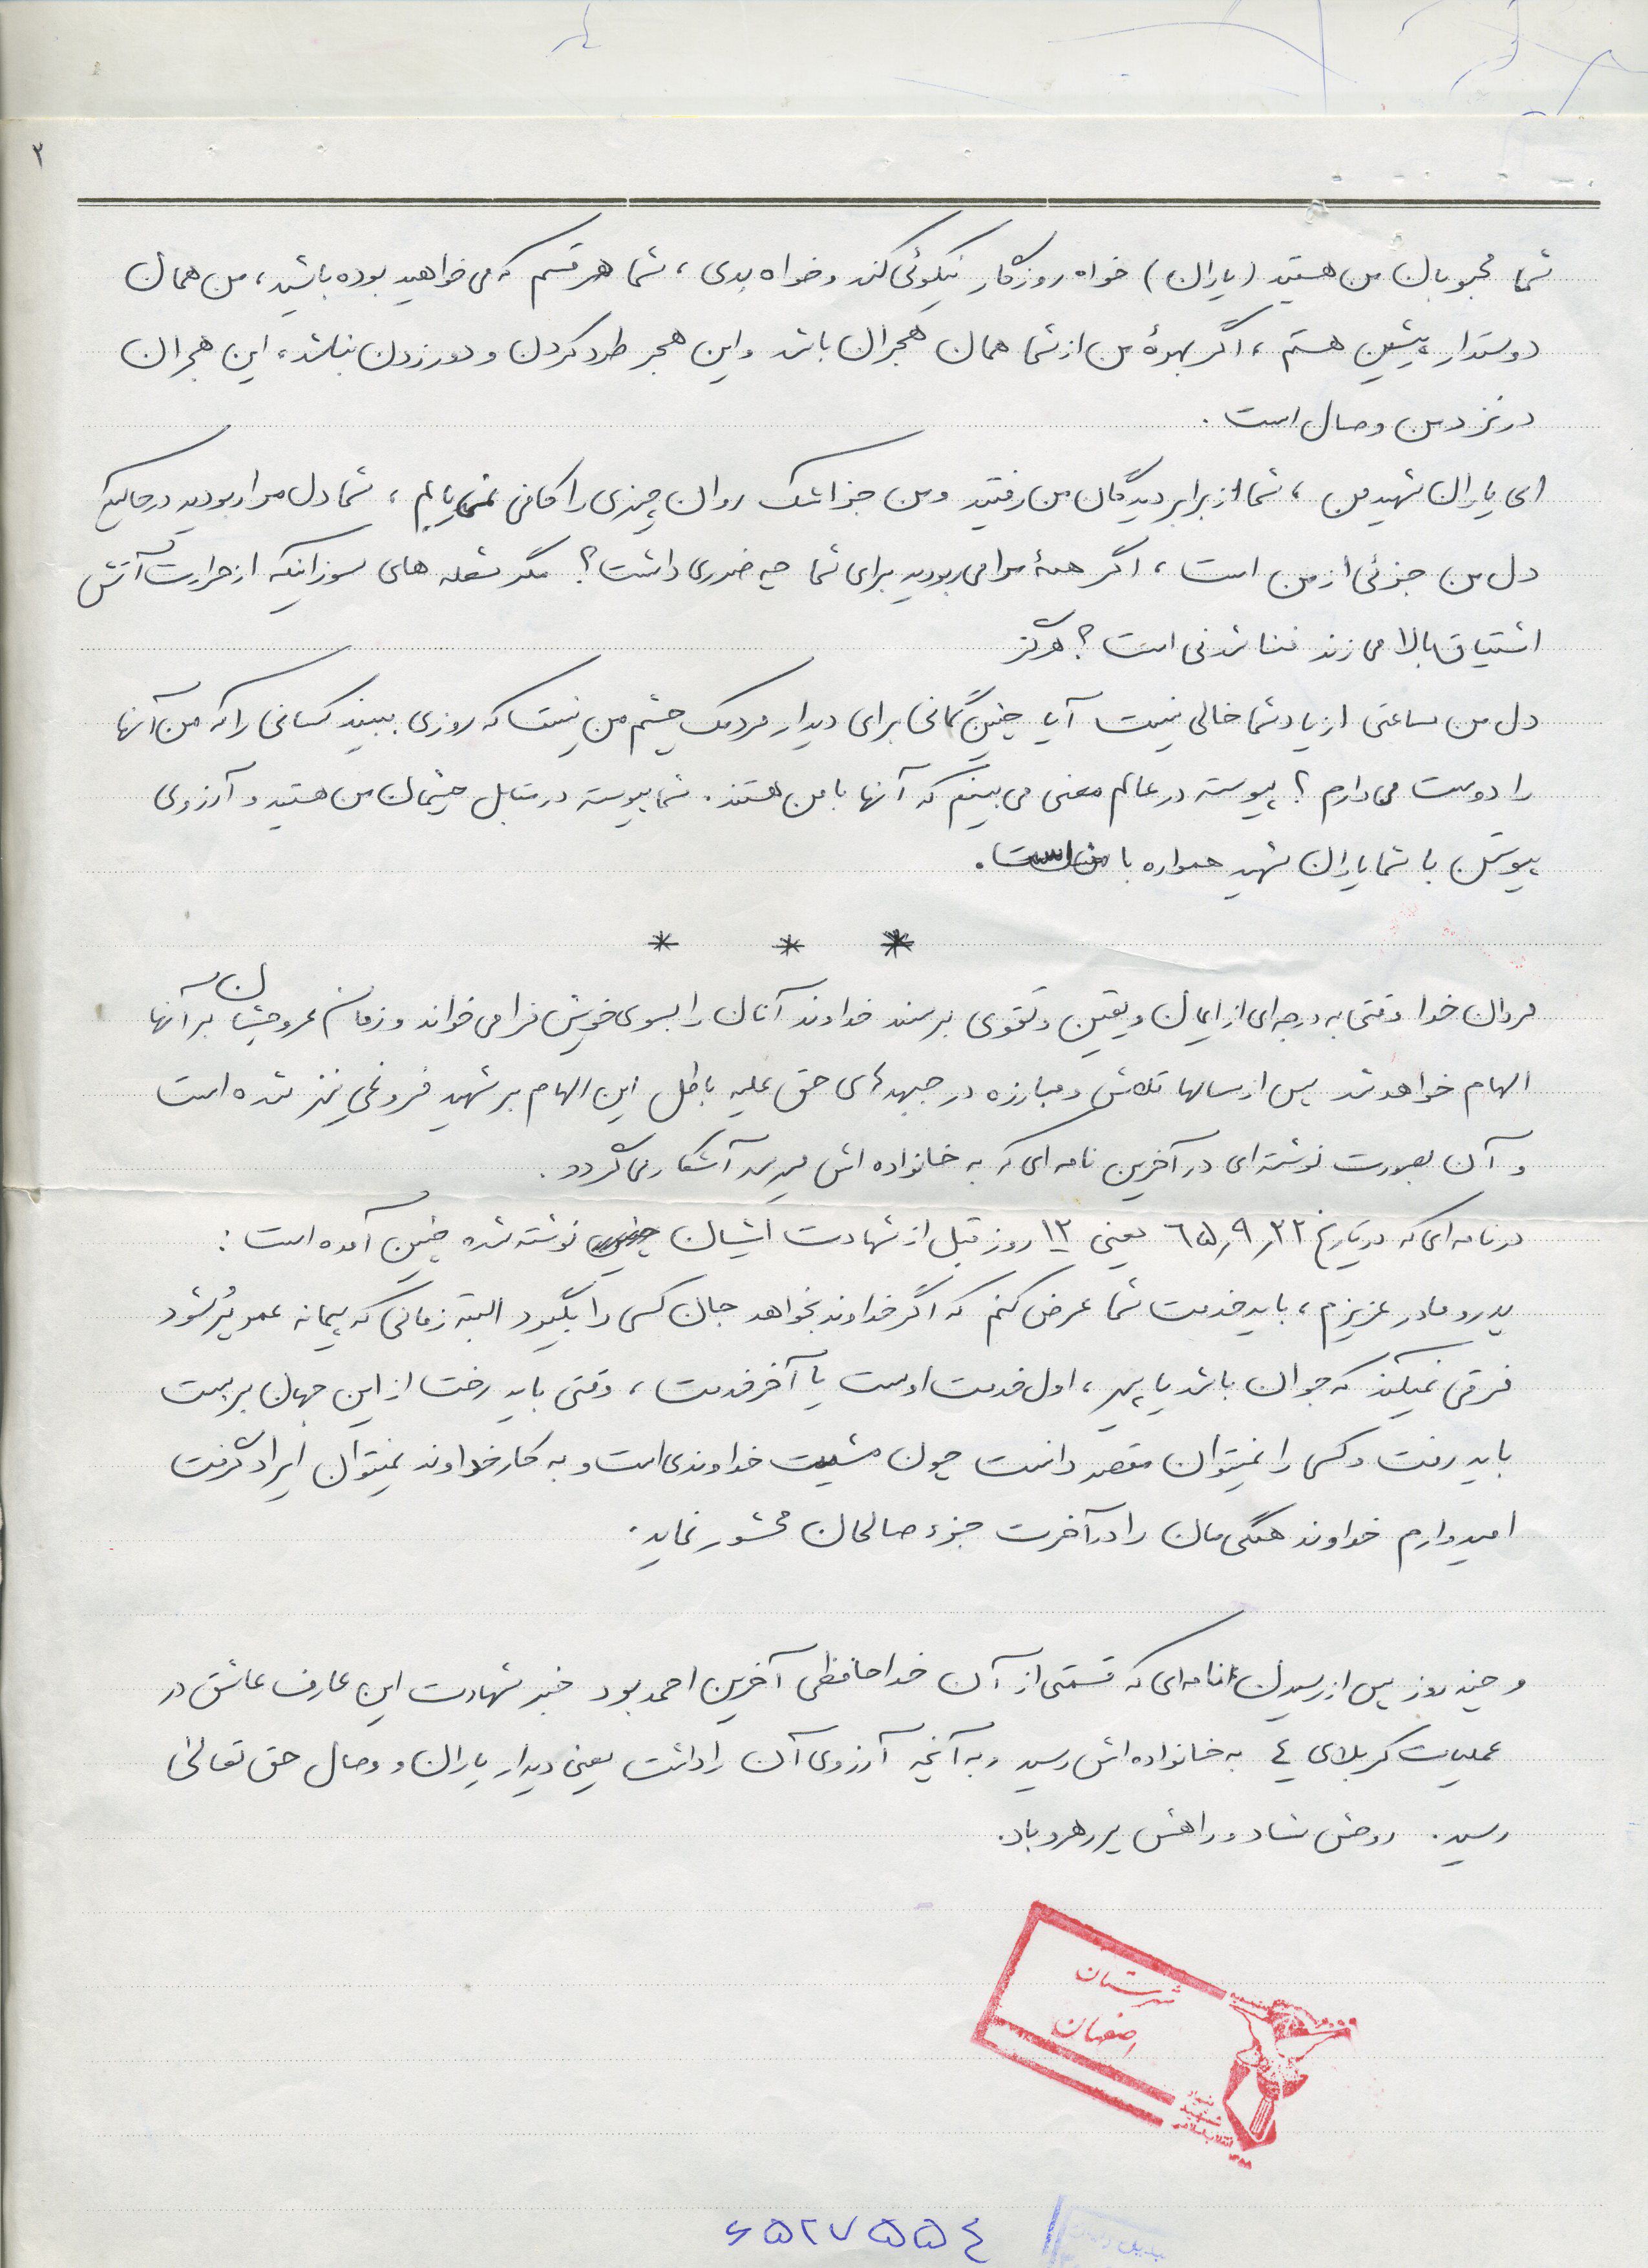 ۲
شما محبوبان من هستید (یاران) خواه روزگار نیکوئی کند و خواه بدی ، شما هر قسم که می خواهید بوده باشید ، من همان
دوستدار پیشین هستم ، اگر بهرهٔ من از شما همان هجران باشد و این هجر طرد کردن و دور زدن نباشد ، این هجران
در نزد من وصال است .
ای یاران شهید من ، شما از برابر دیدگان من رفتید و من جز اشک روان چیزی را کافی نمی یابم ، شما دل مرا ربودید در حالیکه
دل من جزئی از من است ، اگر همهٔ مرا می ربودید برای شما چه ضرری داشت ؟ مگر شعله های سوزانیکه از حرارت آتش
اشتیاق بالا می زند فنا شدنی است ؟ هرگز
دل من ساعتی از یاد شما خالی نیست آیا چنین گمانی برای دیدار مردمک چشم من نیست که روزی ببیند کسانی را که من آنها
را دوست می دارم ؟ پیوسته در عالم معنی می بینم که آنها با من هستند . شما پیوسته در مقابل چشمان من هستید و آرزوی
پیوستن با شما یاران شهید همواره با من است .
* * *
مردان خدا وقتی به درجه ای از ایمان و یقین و تقوی برسند خداوند آنان را بسوی خویش فرا می خواند و زمان عروجشان بر آنها
الهام خواهد شد پس از سالها تلاش و مبارزه در جبهه های حق علیه باطل این الهام بر شهید فروغی نیز شده است
و آن بصورت نوشته ای در آخرین نامه ای که به خانواده اش میرسد آشکار می گردد .
در نامه ای که در تاریخ ۶۵٫۹٫۲۲ یعنی ۱۲ روز قبل از شهادت ایشان نوشته شده چنین آمده است :
پدر و مادر عزیزم ، باید خدمت شما عرض کنم که اگر خداوند بخواهد جان کسی را بگیرد البته زمانی که پیمانه عمر پُر شود
فرقی نمیکند که جوان باشد یا پیر ، اول خدمت اوست یا آخر خدمت ، وقتی باید رخت از این جهان بربست
باید رفت و کسی را نمیتوان مقصر دانست چون مشیت خداوندی است و به کار خداوند نمیتوان ایراد گرفت
امیدوارم خداوند همگی مان را در آخرت جزء صالحان محشور نماید .
و چند روز پس از رسیدن نامه ای که قسمتی از آن خداحافظی آخرین احمد بود خبر شهادت این عارف عاشق در
عملیات کربلای ٤ به خانواده اش رسید و به آنچه آرزوی آن را داشت یعنی دیدار یاران و وصال حق تعالی
رسید . روحش شاد و راهش پر رهرو باد .
شهرستان
اصفهان
بنیاد
شهید
انقلاب اسلامی
۶۵۲۷۵۵٤